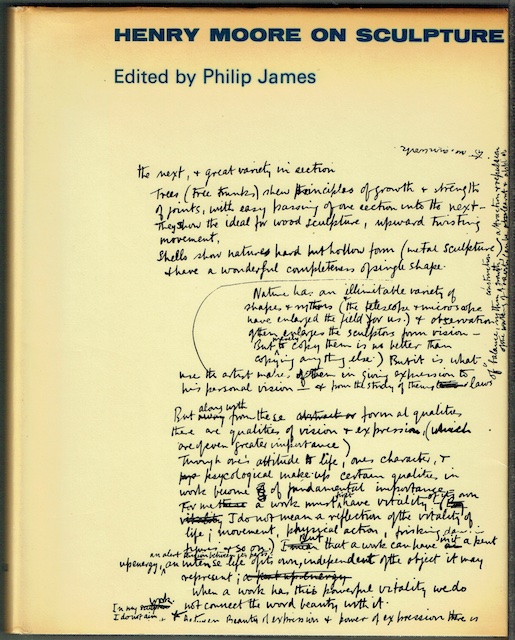 HENRY MOORE ON SCULPTURE
Edited by Philip James
the next, + great variety in section
Trees (tree trunks) shew principles of growth + strength
of joints, with easy passing of one section into the next –
They show the ideal for wood sculpture, upward twisting
movement.
Shells show natures hard but hollow form (metal sculpture)
+ have a wonderful completeness of single shape.
Nature has an illimitable variety of
shapes + rythms (the telescope + microscope
have enlarged the field for us.) + observation
often enlarges the sculptors form vision –
But to merely copy them is no better than
copying anything else) But it is what
use the artist makes of them in giving expression to
his personal vision – + from the study of them laws
of balance
construction
attraction + repulsion
But along with from these abstract or formal qualities
there are qualities of vision + expression, (which
are of even greater importance)
Through one's attitude to life, ones character, +
psycological make up certain qualities in
work become of fundamental importance
For me a work must first have vitality of its own
I do not mean a reflection of the vitality of
life; movement, physical action, frisking
+ so on,) But that a work can have in it a pent
up energy, an intense life of its own, independent of the object it may
represent; a pent up energy
When a work has this powerful vitality we do
not connect the word beauty with it.
In my work
I do not aim
* Between Beauty of expression + power of expression there is